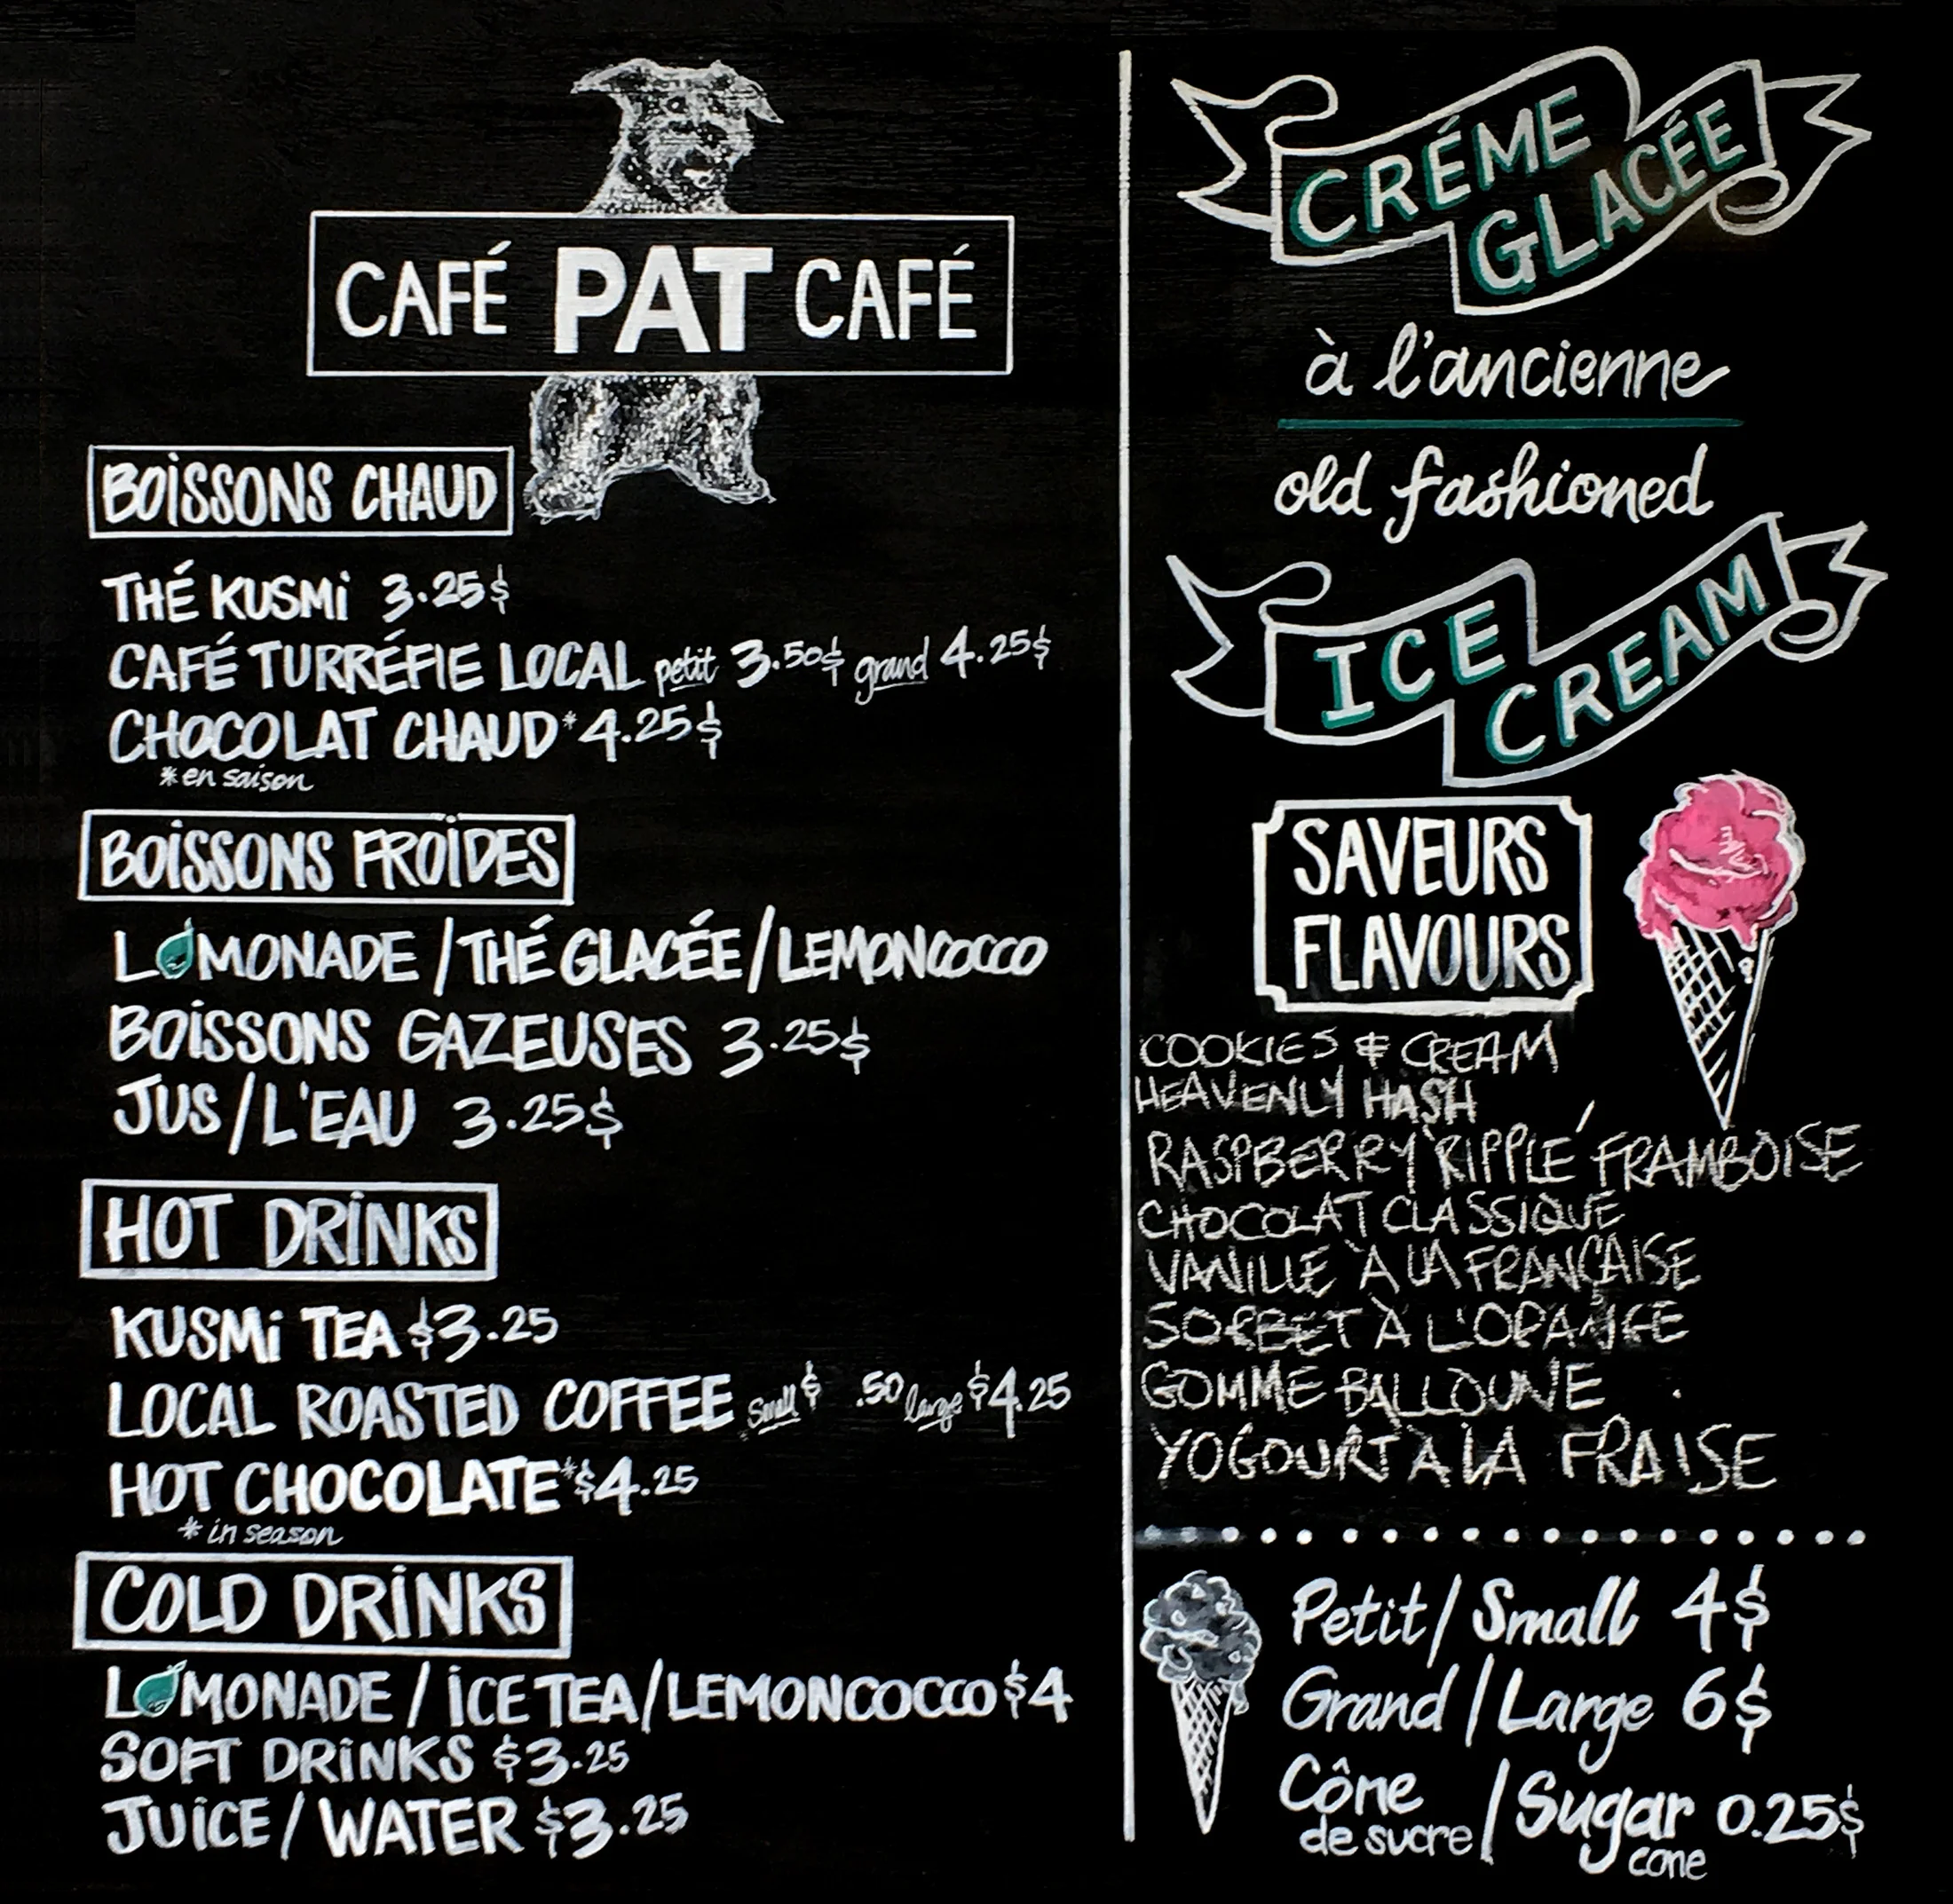 CAFÉ PAT CAFÉ
BOISSONS CHAUD
THÉ KUSMI 3.25$
CAFÉ TURRÉFIE LOCAL petit 3.50$ grand 4.25$
CHOCOLAT CHAUD* 4.25$
*en saison
BOISSONS FROÏDES
LMONADE / THÉ GLACÉE / LEMONCOCCO
BOISSONS GAZEUSES 3.25$
JUS / L'EAU 3.25$
HOT DRINKS
KUSMI TEA $3.25
LOCAL ROASTED COFFEE small $ .50 large $4.25
HOT CHOCOLATE* $4.25
* in season
COLD DRINKS
LMONADE / ICE TEA / LEMONCOCCO $4
SOFT DRINKS $3.25
JUICE / WATER $3.25
CRÉME
GLACÉE
à l'ancienne
old fashioned
ICE
CREAM
SAVEURS
FLAVOURS
COOKIES & CREAM
HEAVENLY HASH
RASPBERRY RIPPLÉ FRAMBOISE
CHOCOLAT CLASSIQUE
VANILLE À LA FRANÇAISE
SORBET À L'ORANGE
GOMME BALLOUNE
YOGOURT À LA FRAISE
Petit / Small 4$
Grand / Large 6$
Cône de sucre / Sugar cone 0.25$